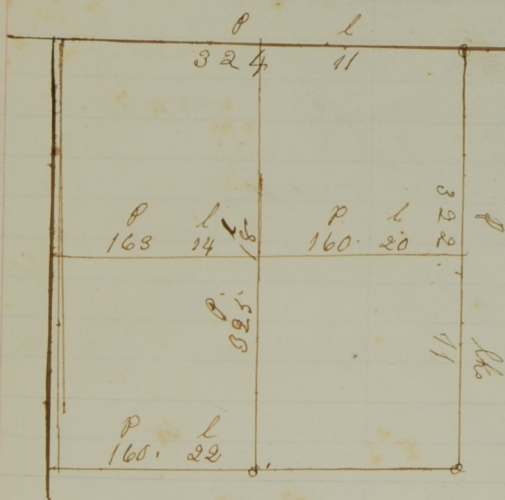 P l
324 11
P l
163 14
P l
160. 20
P l
325 15
322 P
11 lks
P l
160. 22